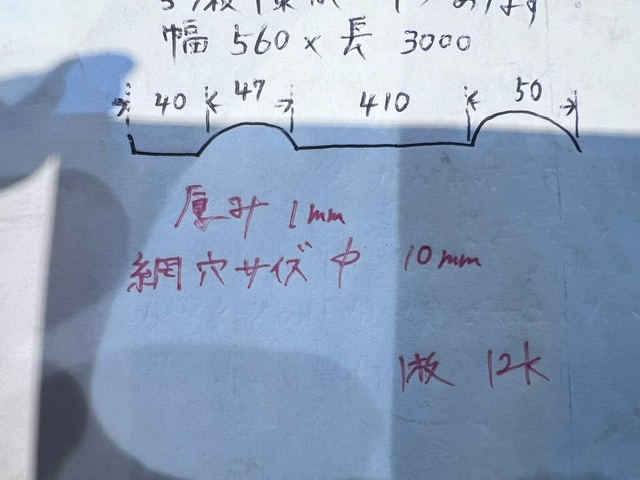 幅 560 × 長 3000
40 47 410 50
厚み 1mm
網穴サイズ φ 10mm
1枚 12k